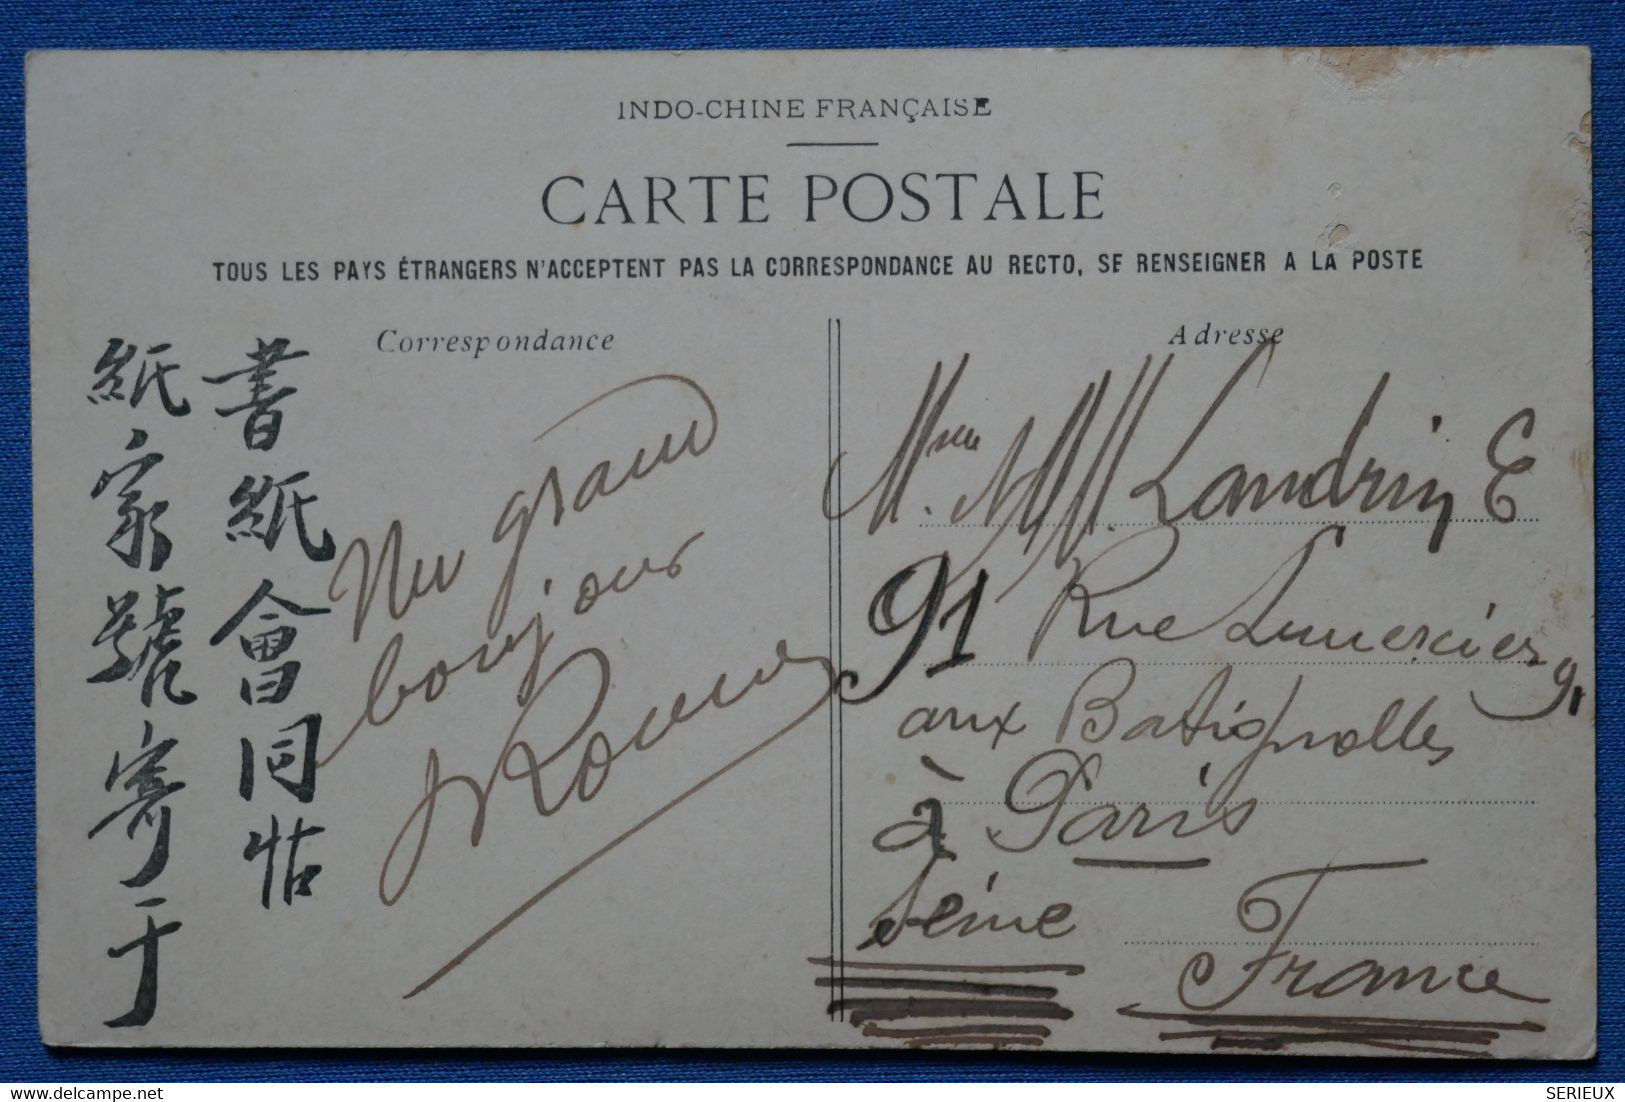 INDO-CHINE FRANÇAISE
CARTE POSTALE
TOUS LES PAYS ÉTRANGERS N'ACCEPTENT PAS LA CORRESPONDANCE AU RECTO, SE RENSEIGNER A LA POSTE
Correspondance
書紙會同
紙家號寄于
Un grand
bonjour
Adresse
Mme Landrin E
91 Rue Lemercier 91
aux Batignolles
à à Paris
Seine
France
SERIEUX